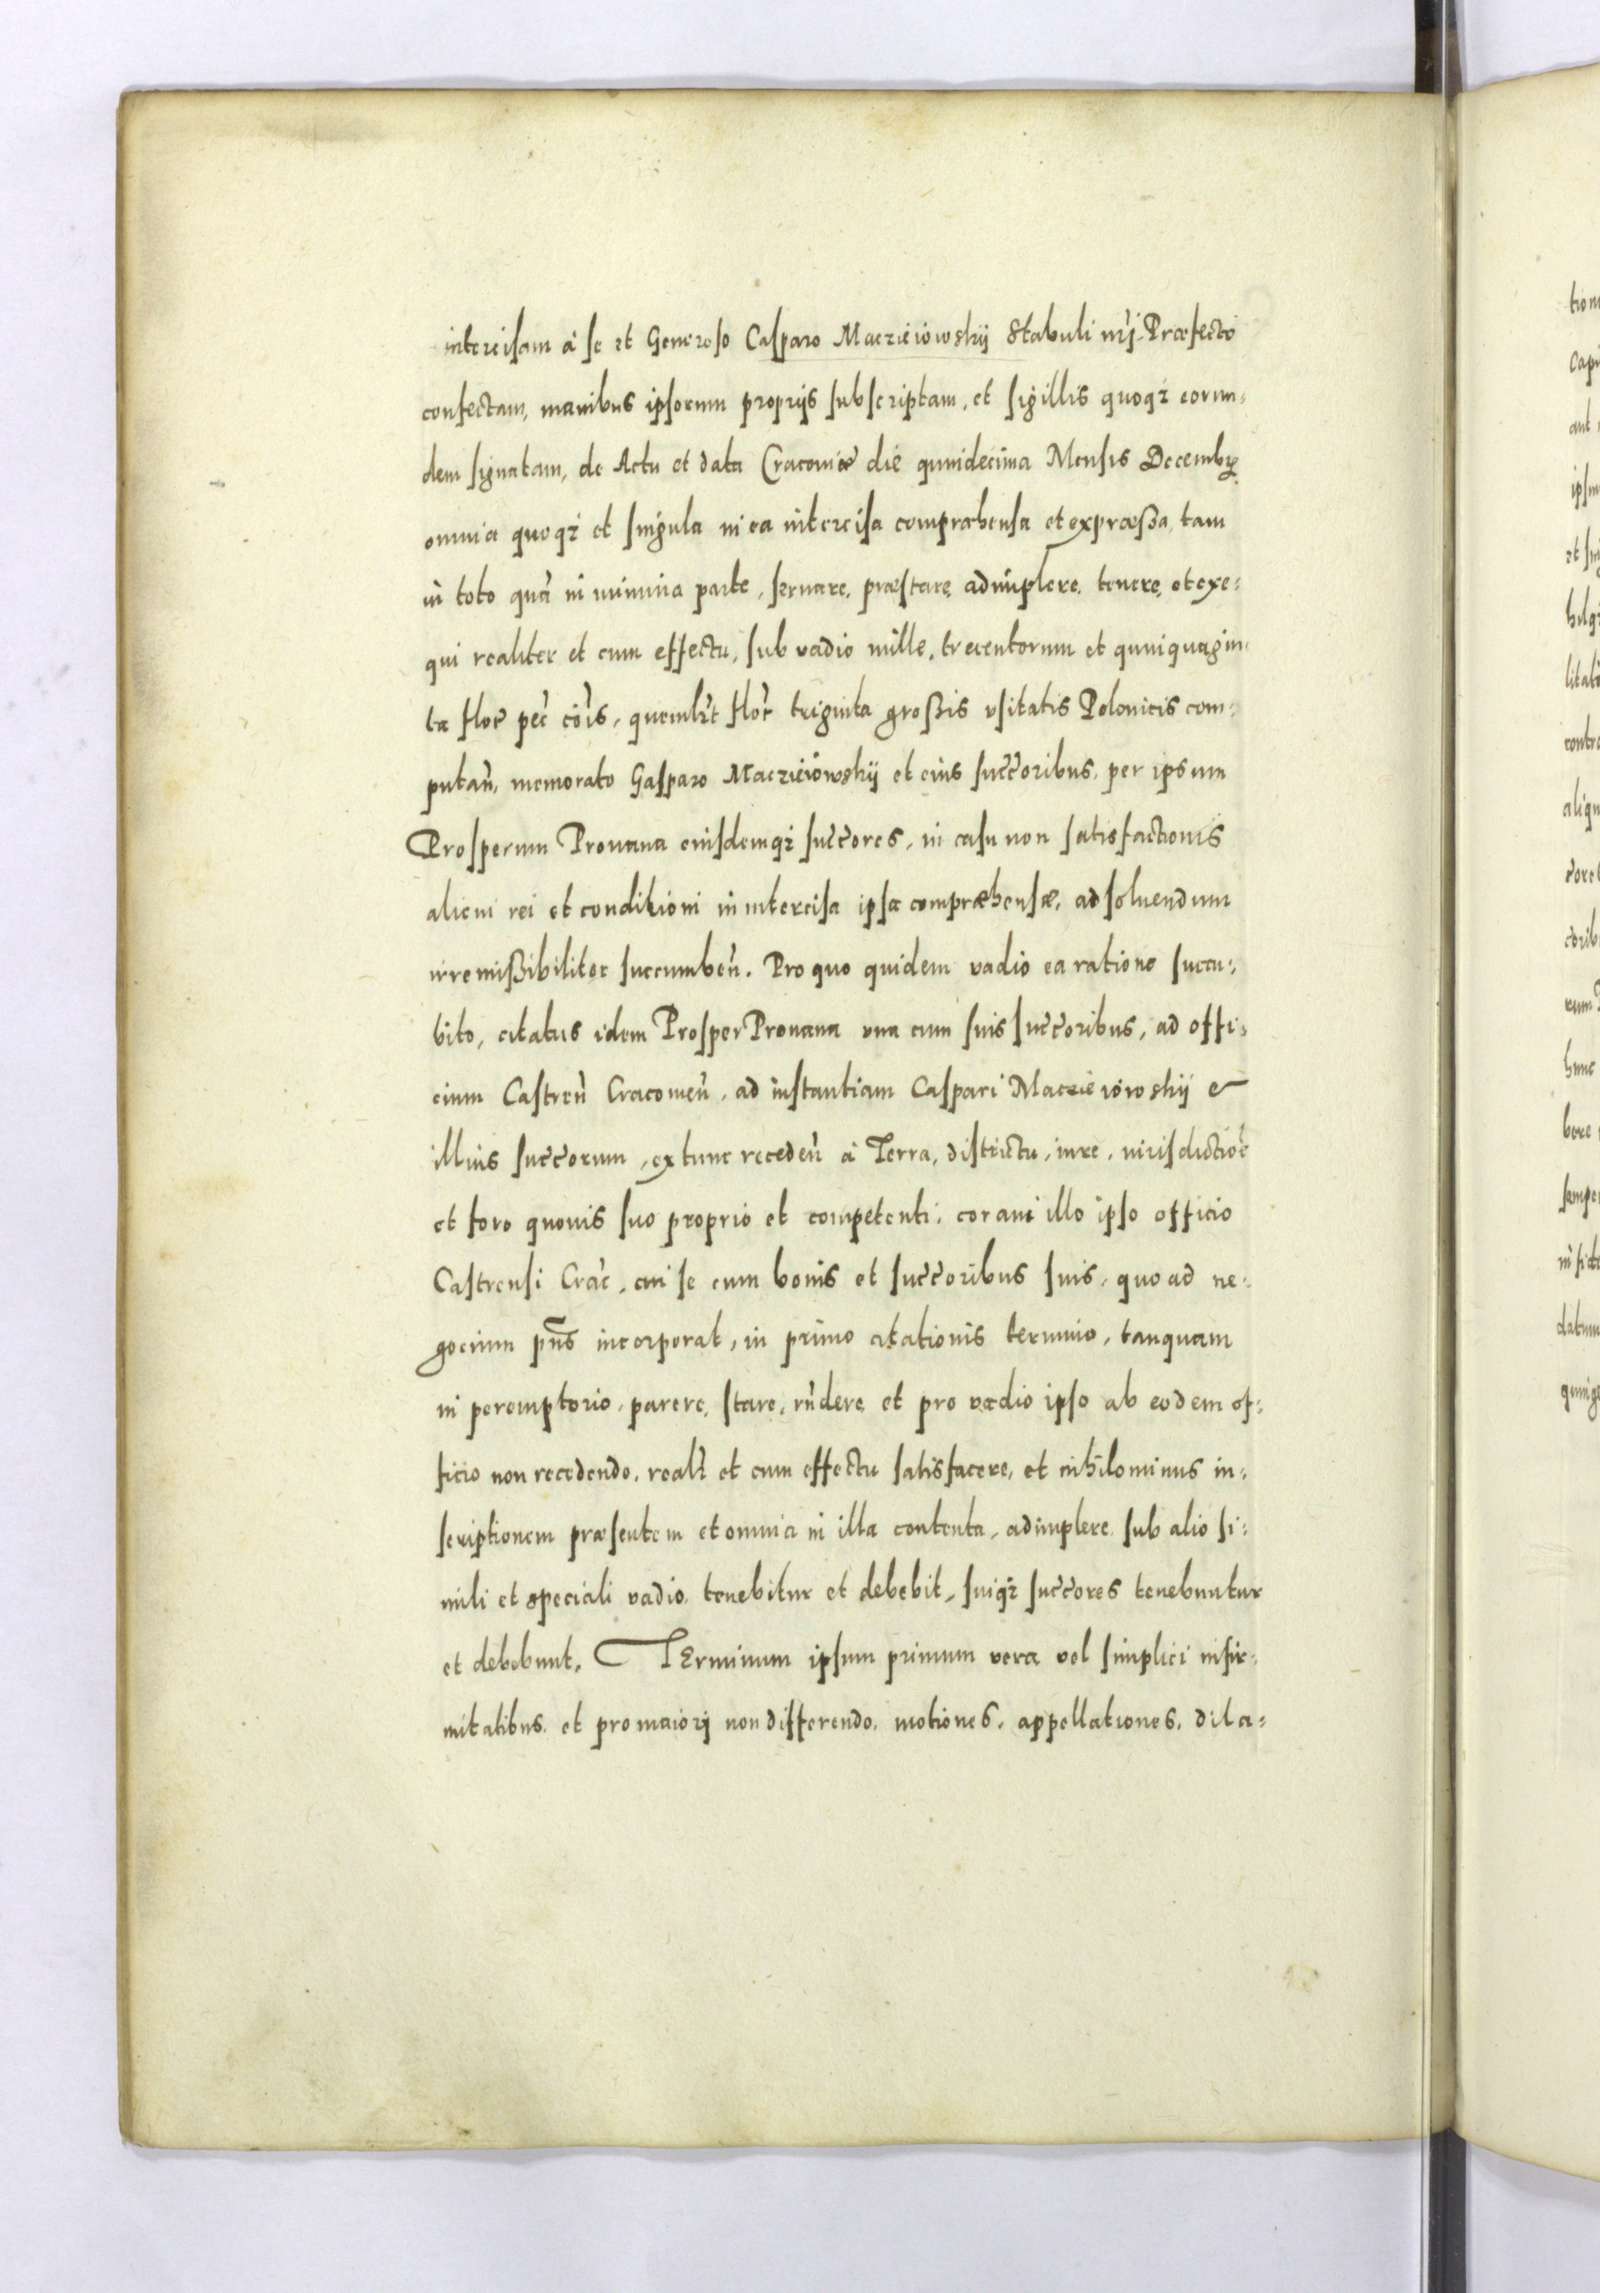 intercisam à se et Generoso Casparo Macziciowskij Stabuli nrĩ Præfecto
confectam, manibus ipsorum proprijs subscriptam, et sigillis quoqȝ eorun-
dem signatam, de Actu et data Cracoviæ die quindecima Mensis Decembr̃
omnia quoqȝ et singula in ea intercisa compræhensa et expræßa, tam
in toto quã in minima parte, seruare, præstare, adimplere, tenere, et exe-
qui realiter et cum effectu, sub vadio mille, trecentorum et quinquagin-
ta flor̃ pec̃ cõis, quemlr̃t flor̃ triginta großis vsitatis Polonicis com-
putan̄, memorato Gasparo Macziciowskij et eius succ̃oribus, per ipsum
Prosperum Prouana eiusdemqȝ succ̃ores, in casu non satisfactionis
alicui rei et conditioni in intercisa ipsa compræhensæ, ad soluendum
irremißibiliter succumben̄. Pro quo quidem vadio ea ratione succu-
bito, citatus idem Prosper Prouana vna cum suis succ̃oribus, ad offi-
cium Castren̄ Cracouien̄, ad instantiam Caspari Macziciowskij &
illius succ̃orum, ex tunc receden̄ à Terra, districtu, iure, iurisdictiõe
et foro quouis suo proprio et competenti, coram illo ipso officio
Castrensi Crac̃, cui se cum bonis et succ̃oribus suis, quo ad ne-
gocium pñs incorporat, in primo citationis termino, tanquam
in peremptorio, parere, stare, rñdere, et pro vadio ipso ab eodem of-
ficio non recedendo, realr̃ et cum effectu satisfacere, et nihilominus in-
scriptionem præsentem et omnia in illa contenta, adimplere sub alio si-
mili et speciali vadio, tenebitur et debebit, suiqȝ succ̃ores tenebuntur
et debebunt. TErminum ipsum primum vera vel simplici infir-
mitatibus, et pro maiori non differendo, motiones, appellationes, dila-